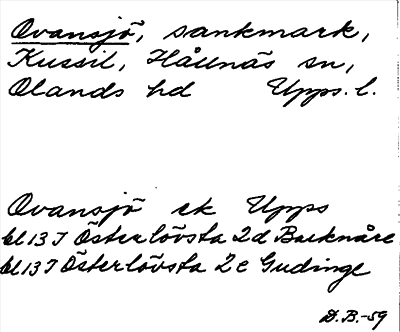 Ovansjö, sankmark,
Kussil, Hållnäs sn,
Olands hd Upps. l.
Ovansjö ek Upps
bl 13 I Österlövsta 2d Barknåre
bl 13 I Österlövsta 2e Gudinge
D.B.-59